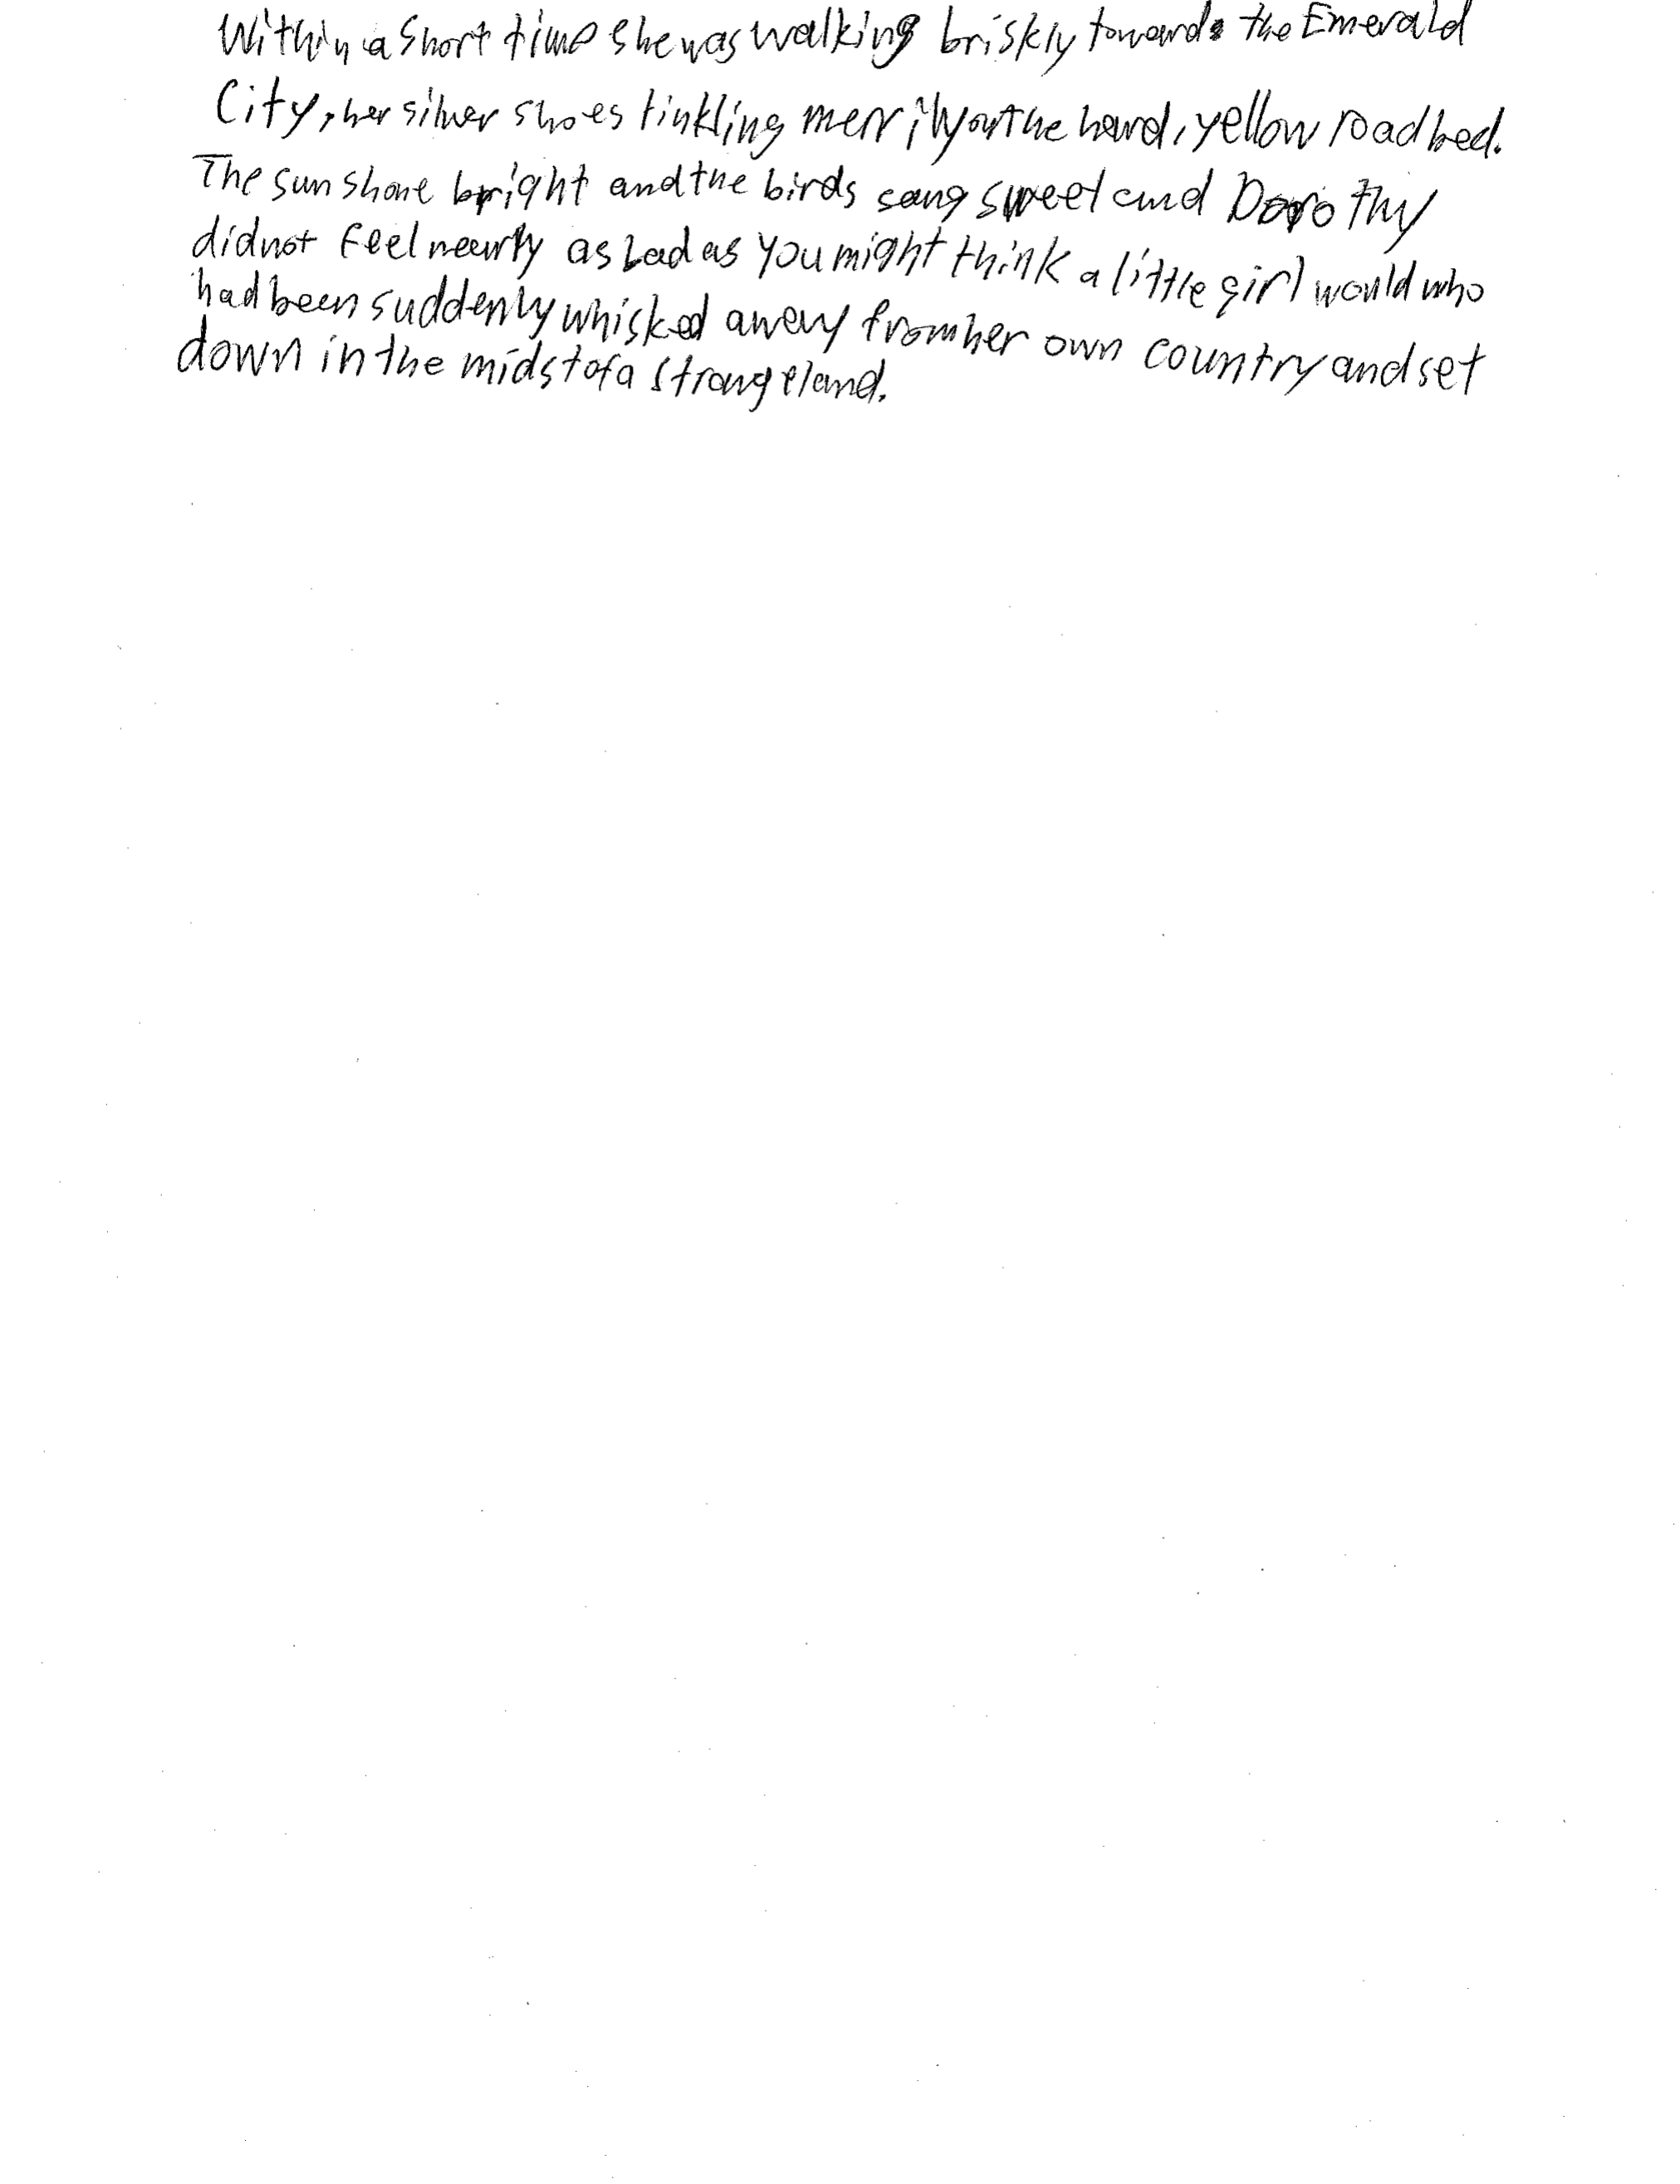 Within a short time she was walking briskly towards the Emerald
City, her silver shoes tinkling merrily on the hard, yellow roadbed.
The sun shone bright and the birds sang sweet and Dorothy
did not feel nearly as bad as you might think a little girl would who
had been suddenly whisked away from her own country and set
down in the midst of a strange land.